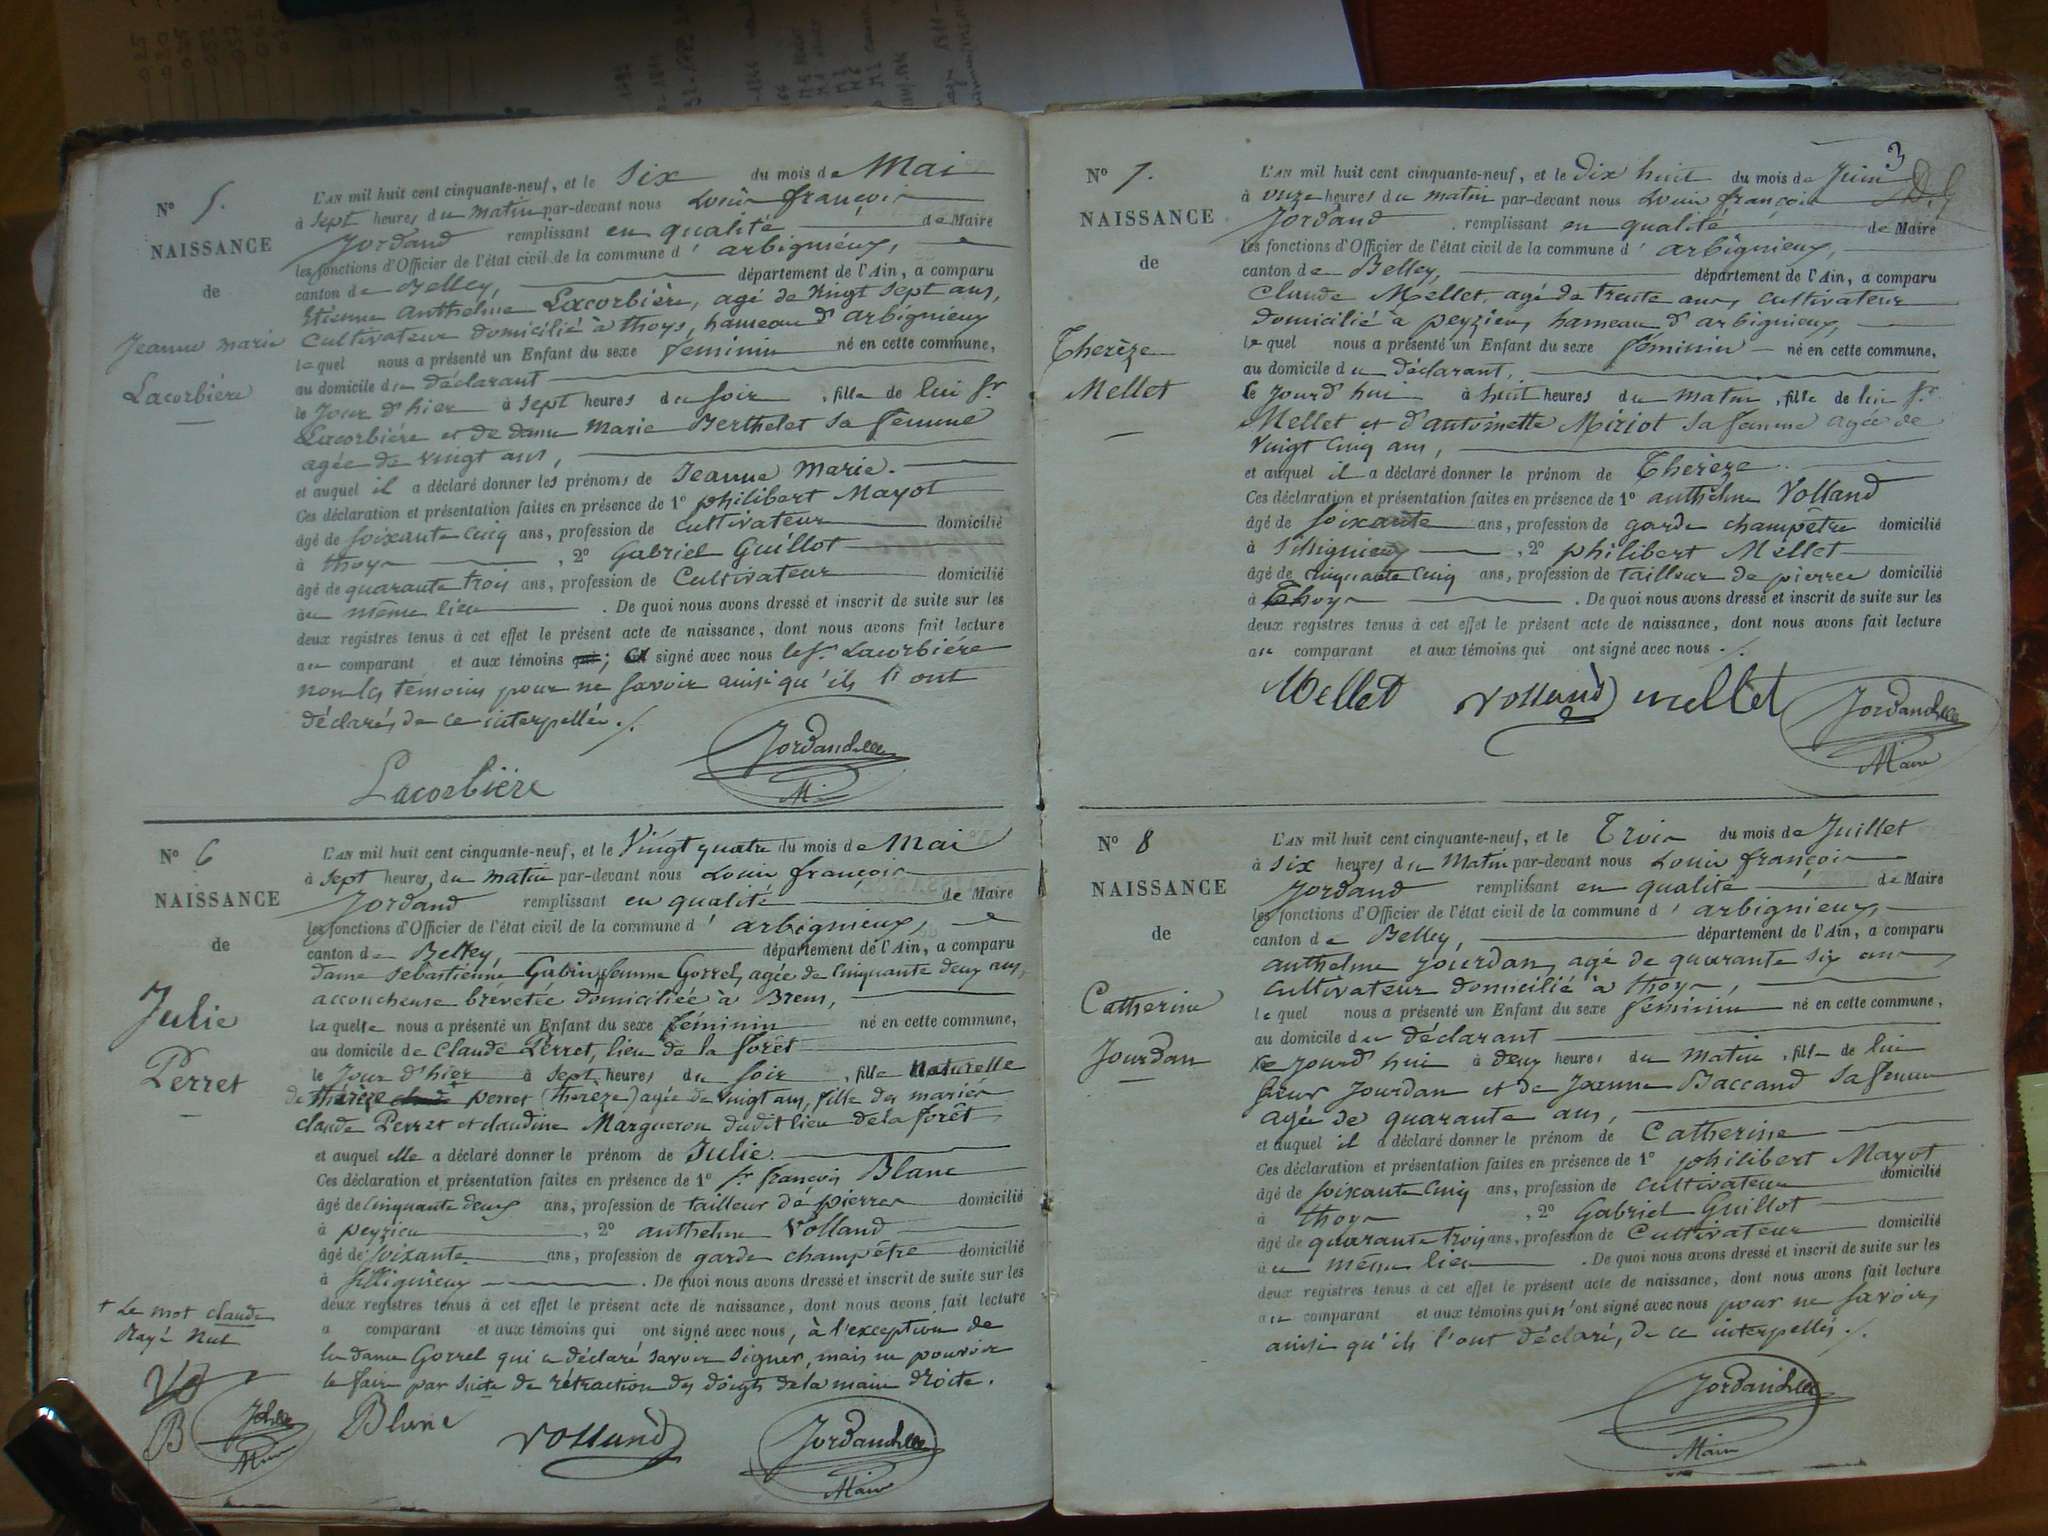 N° 5.
NAISSANCE
de
Jeanne marie
Lacorbière
L'AN mil huit cent cinquante-neuf, et le six du mois de Mai
à sept heures du matin par-devant nous Louis françois
Jordand remplissant en qualité de Maire
les fonctions d'Officier de l'état civil de la commune d'arbignieux,
canton de Belley, département de l'Ain, a comparu
Etienne anthelme Lacorbière, agé de vingt sept ans,
cultivateur domicilié à thoys, hameau d'arbignieux
lequel nous a présenté un Enfant du sexe féminin né en cette commune,
au domicile du déclarant
le jour d'hier à sept heures du soir, fille de lui sr
Lacorbière et de dame Marie Berthelet sa femme
agée de vingt ans,
et auquel il a déclaré donner les prénoms de Jeanne Marie.
Ces déclaration et présentation faites en présence de 1° philibert Mayot
âgé de soixante cinq ans, profession de cultivateur domicilié
à thoys, 2° Gabriel Guillot
âgé de quarante trois ans, profession de Cultivateur domicilié
au même lieu. De quoi nous avons dressé et inscrit de suite sur les
deux registres tenus à cet effet le présent acte de naissance, dont nous avons fait lecture
au comparant et aux témoins qui; et signé avec nous le sr. Lacorbière
non les témoins pour ne savoir ainsi qu'ils l'ont
déclaré, de ce interpellés./.
Lacorbière
Jordand
M
N° 6
NAISSANCE
de
Julie
Perret
L'AN mil huit cent cinquante-neuf, et le Vingt quatre du mois de Mai
à sept heures, du matin par-devant nous Louis françois
Jordand remplissant en qualité de Maire
les fonctions d'Officier de l'état civil de la commune d'arbignieux,
canton de Belley, département de l'Ain, a comparu
dame sebastienne Gabin femme Gorrel, agée de cinquante deux ans,
accoucheuse brévetée domiciliée à Brens,
laquelle nous a présenté un Enfant du sexe féminin né en cette commune,
au domicile de Claude Perret, lieu de la forêt
le jour d'hier à sept heures du soir, fille Naturelle
de thérèze claude perret (thereze) agée de vingt ans, fille des mariés
claude Perret et claudine Margueron dudit lieu de la forêt
et auquel elle a déclaré donner le prénom de Julie.
Ces déclaration et présentation faites en présence de 1° sr françois Blanc
âgé de cinquante deux ans, profession de tailleur de pierres domicilié
à peyzieu, 2° anthelme Volland
âgé de soixante ans, profession de garde champêtre domicilié
à Sillignieux. De quoi nous avons dressé et inscrit de suite sur les
deux registres tenus à cet effet le présent acte de naissance, dont nous avons fait lecture
a comparant et aux témoins qui ont signé avec nous, à l'exception de
la dame Gorrel qui a déclaré savoir signer, mais ne pouvoir
le faire par suite de rétraction des doigts de la main droite.
+ Le mot claude
Rayé Nul
B
Maire
Blanc
Volland
Jordand
Maire
3
N° 7.
NAISSANCE
de
Therèze
Mellet
L'AN mil huit cent cinquante-neuf, et le dix huit du mois de Juin
à onze heures du matin par-devant nous Louis françois
Jordand remplissant en qualité de Maire
les fonctions d'Officier de l'état civil de la commune d'arbignieux,
canton de Belley, département de l'Ain, a comparu
Claude Mellet, agé de trente ans, cultivateur
domicilié à peyzieu, hameau d'arbignieux,
lequel nous a présenté un Enfant du sexe féminin né en cette commune,
au domicile du déclarant,
ce jourd'hui à huit heures du matin, fille de lui sr
Mellet et d'antoinette Miriot sa femme agée de
vingt cinq ans,
et auquel il a déclaré donner le prénom de Therèze.
Ces déclaration et présentation faites en présence de 1° anthelme Volland
âgé de soixante ans, profession de garde champêtre domicilié
à Sillignieux, 2° philibert Mellet
âgé de cinquante cinq ans, profession de tailleur de pierres domicilié
à Thoys. De quoi nous avons dressé et inscrit de suite sur les
deux registres tenus à cet effet le présent acte de naissance, dont nous avons fait lecture
au comparant et aux témoins qui ont signé avec nous./.
Mellet Volland mellet Jordand
Maire
N° 8
NAISSANCE
de
Catherine
Jourdan
L'AN mil huit cent cinquante-neuf, et le Trois du mois de Juillet
à six heures du Matin par-devant nous Louis françois
Jordand remplissant en qualité de Maire
les fonctions d'Officier de l'état civil de la commune d'arbignieux,
canton de Belley, département de l'Ain, a comparu
anthelme jourdan, agé de quarante six ans
cultivateur domicilié à thoys,
lequel nous a présenté un Enfant du sexe féminin né en cette commune,
au domicile du déclarant
ce jourd'hui à deux heures du matin, fille de lui
sieur Jourdan et de Jeanne Baccand sa femme
agée de quarante ans,
et auquel il a déclaré donner le prénom de Catherine
Ces déclaration et présentation faites en présence de 1° philibert Mayot
âgé de soixante cinq ans, profession de cultivateur domicilié
à thoys, 2° Gabriel Guillot
âgé de quarante trois ans, profession de Cultivateur domicilié
au même lieu. De quoi nous avons dressé et inscrit de suite sur les
deux registres tenus à cet effet le présent acte de naissance, dont nous avons fait lecture
au comparant et aux témoins qui n'ont signé avec nous pour ne savoir,
ainsi qu'ils l'ont déclaré, de ce interpellés./.
Jordand
Maire